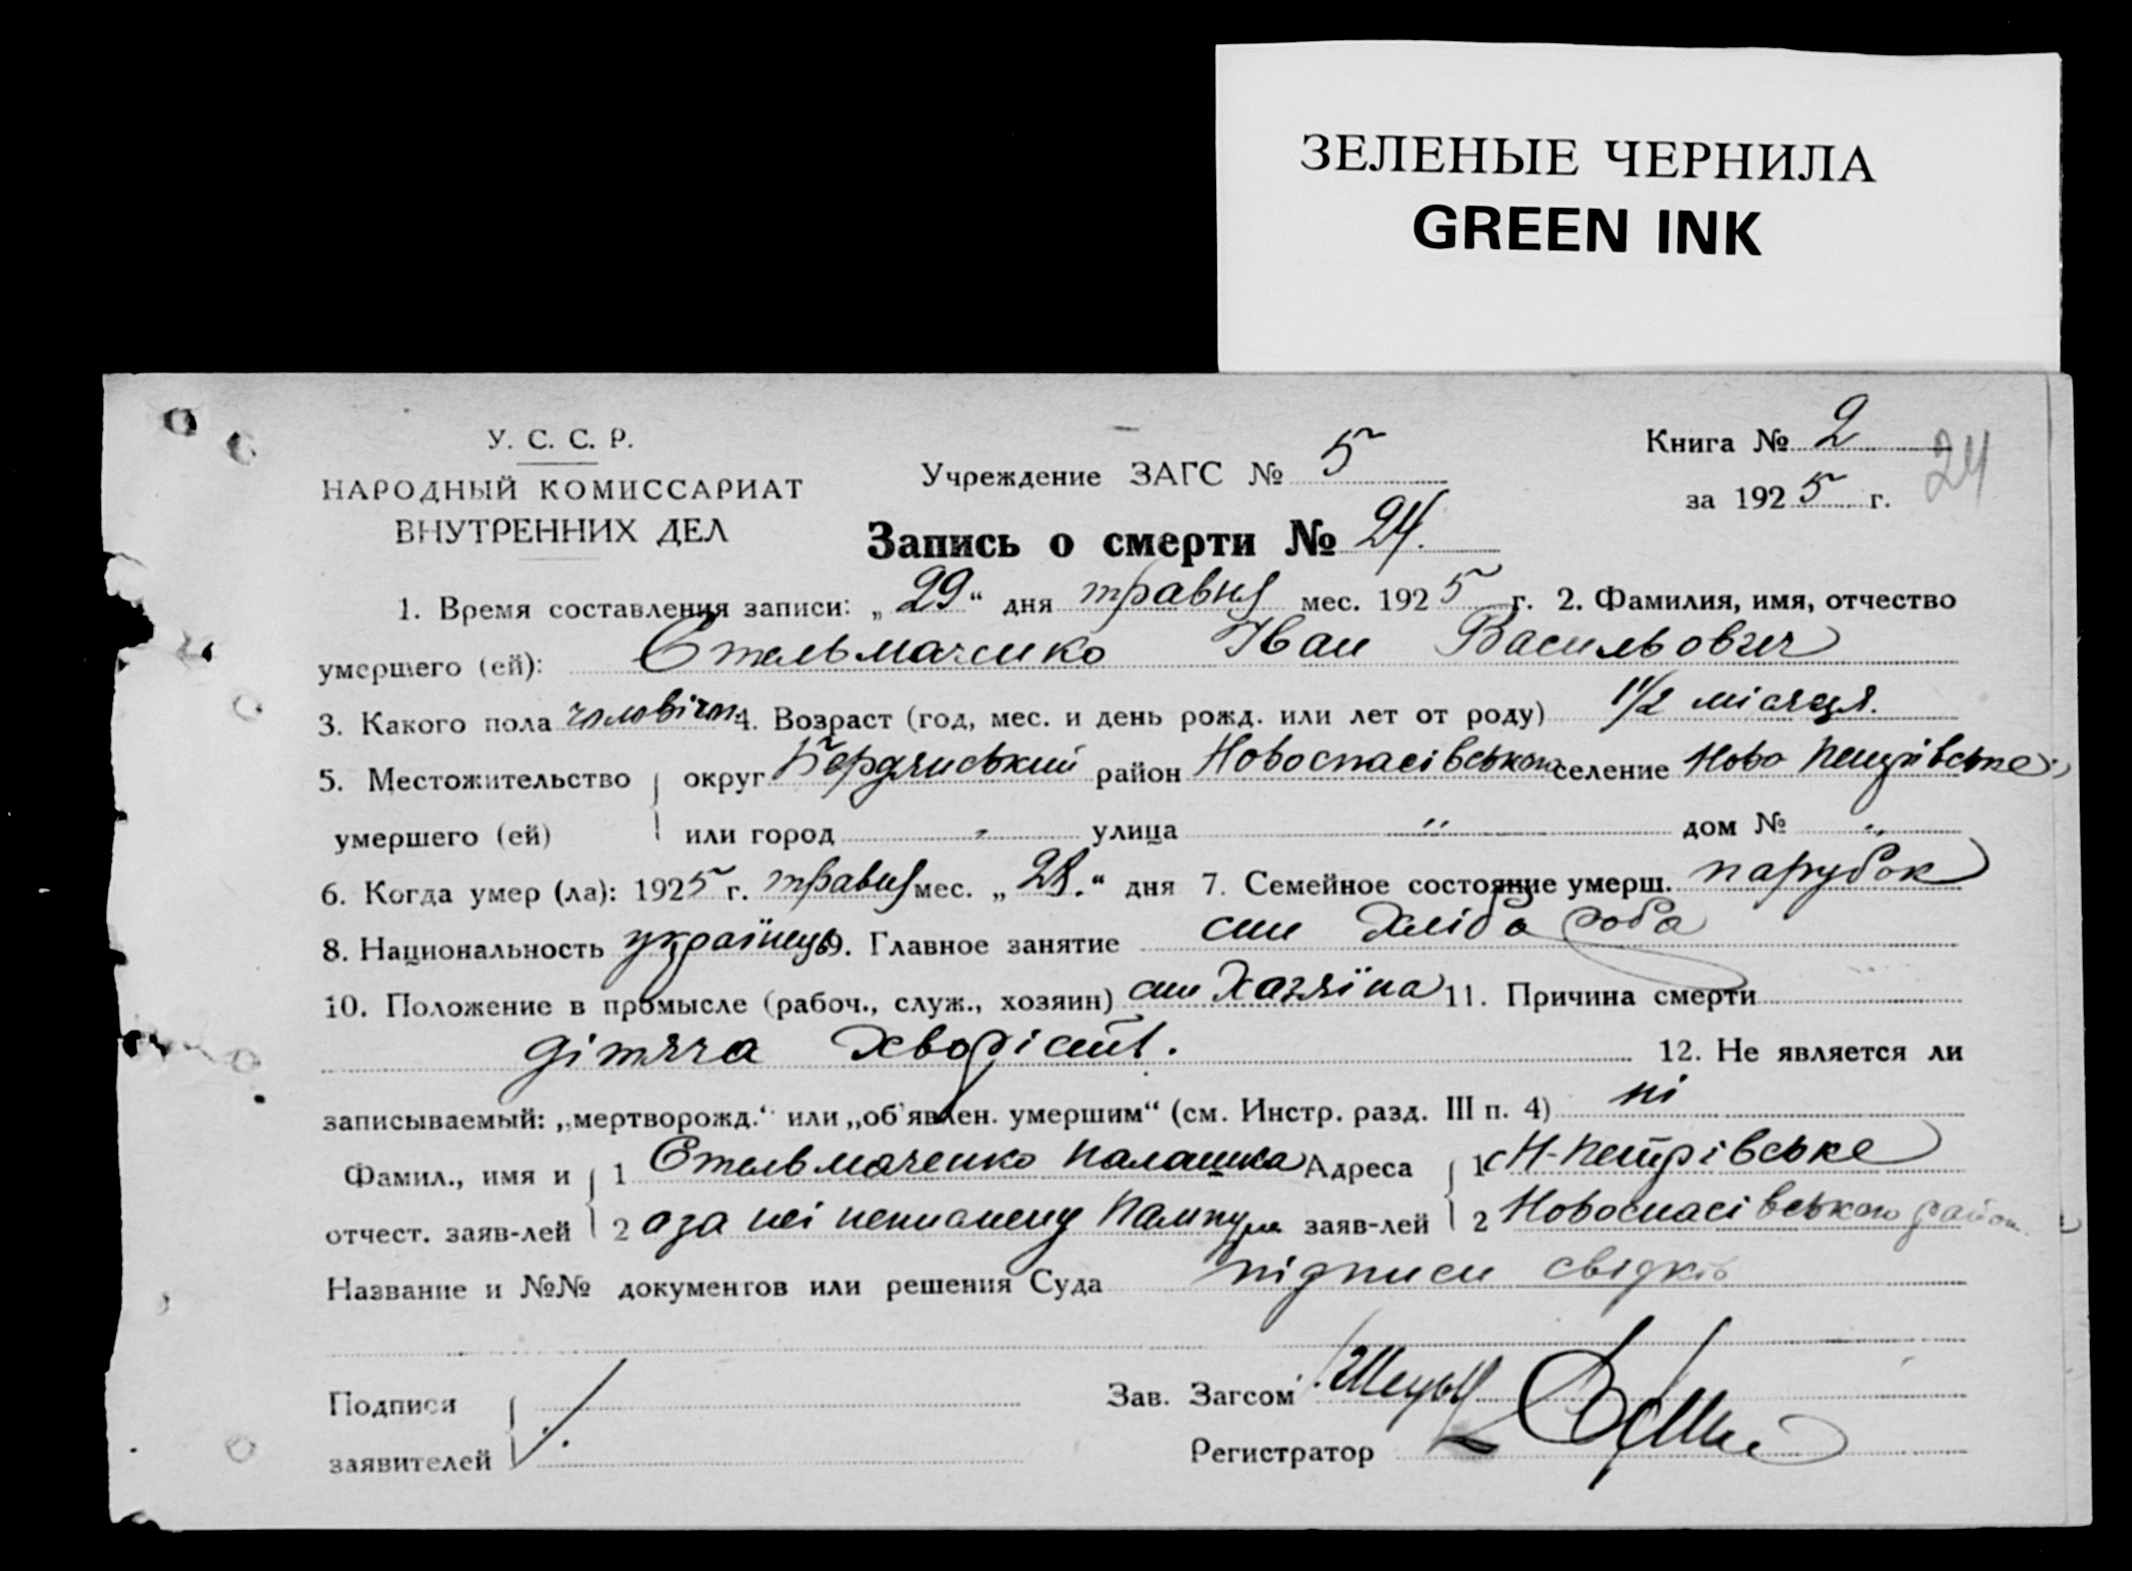 ЗЕЛЕНЫЕ ЧЕРНИЛА
GREEN INK
У. С. С. Р.
НАРОДНЫЙ КОМИССАРИАТ
ВНУТРЕННИХ ДЕЛ
Учреждение ЗАГС № 5
Книга № 2
за 1925 г.
24
Запись о смерти № 24.
1. Время составления записи: „29“ дня травня мес. 1925 г. 2. Фамилия, имя, отчество
умершего (ей): Стельмаченко Іван Васильович
3. Какого пола чоловічоі 4. Возраст (год, мес. и день рожд. или лет от роду) 1 1/2 місяця.
5. Местожительство округ Бердянський район Новоспасівського селение Ново Петрівське
умершего (ей) или город - улица " дом № "
6. Когда умер (ла): 1925 г. травня мес. „28.“ дня 7. Семейное состояние умерш. парубок
8. Национальность українець 9. Главное занятие син хліба роба
10. Положение в промысле (рабоч., служ., хозяин) син хазяїна 11. Причина смерти
дітяча хворість. 12. Не является ли
записываемый: „мертворожд.“ или „об'явлен. умершим“ (см. Инстр. разд. III п. 4) ні
Фамил., имя и 1 Стельмаченко Палашка Адреса 1 с Н-Петрівське
отчест. заяв-лей 2 а за неі неписмену заяв-лей 2 Новоспасівського район
Название и №№ документов или решения Суда підписи свідків
Подписи Зав. Загсом
заявителей Регистратор